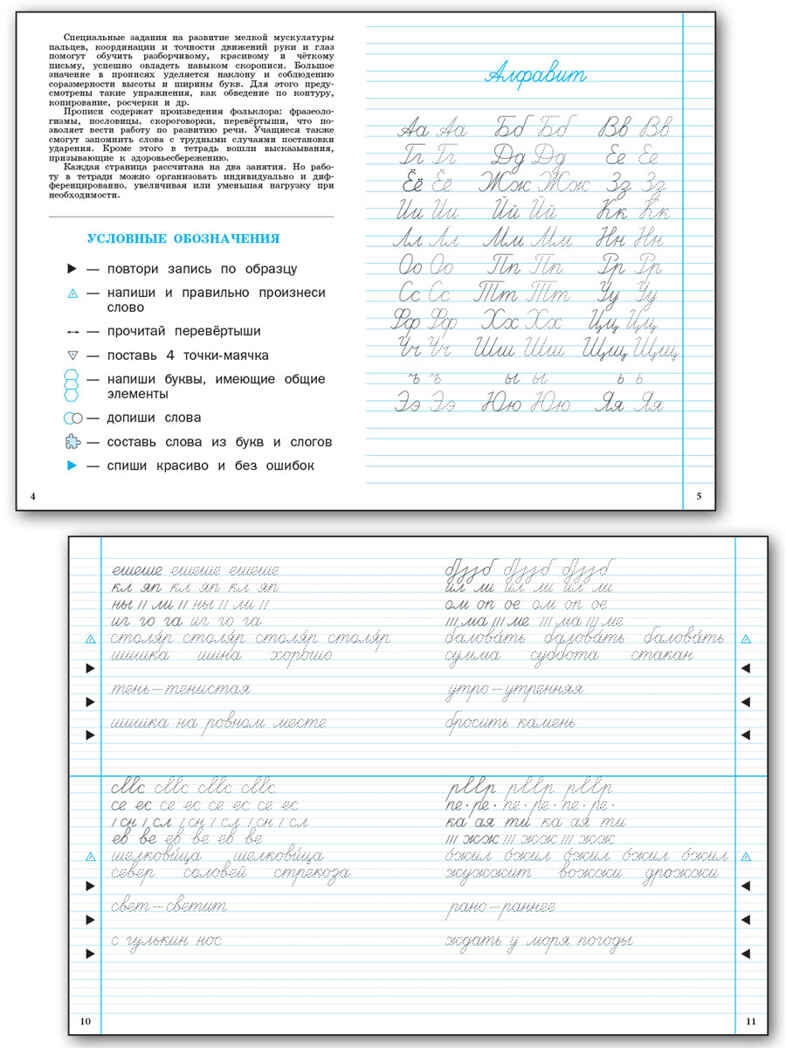 Специальные задания на развитие мелкой мускулатуры
пальцев, координации и точности движений руки и глаз
помогут обучить разборчивому, красивому и чёткому
письму, успешно овладеть навыком скорописи. Большое
значение в прописях уделяется наклону и соблюдению
соразмерности высоты и ширины букв. Для этого преду-
смотрены такие упражнения, как обведение по контуру,
копирование, росчерки и др.
Прописи содержат произведения фольклора: фразеоло-
гизмы, пословицы, скороговорки, перевёртыши, что по-
зволяет вести работу по развитию речи. Учащиеся также
смогут запомнить слова с трудными случаями постановки
ударения. Кроме этого в тетрадь вошли высказывания,
призывающие к здоровьесбережению.
Каждая страница рассчитана на два занятия. Но рабо-
ту в тетради можно организовать индивидуально и диф-
ференцированно, увеличивая или уменьшая нагрузку при
необходимости.
УСЛОВНЫЕ ОБОЗНАЧЕНИЯ
— повтори запись по образцу
— напиши и правильно произнеси
слово
— прочитай перевёртыши
— поставь 4 точки-маячка
— напиши буквы, имеющие общие
элементы
— допиши слова
— составь слова из букв и слогов
— спиши красиво и без ошибок
4
Алфавит
Аа Аа Бб Бб Вв Вв
Гг Гг Дд Дд Ее Ее
Ёё Ёё Жж Жж Зз Зз
Ии Ии Йй Йй Кк Кк
Лл Лл Мм Мм Нн Нн
Оо Оо Пп Пп Рр Рр
Сс Сс Тт Тт Уу Уу
Фф Фф Хх Хх Цц Цц
Чч Чч Шш Шш Щщ Щщ
ъ ъ ы ы ь ь
Ээ Ээ Юю Юю Яя Яя
5
ешеше ешеше ешеше
кл яп кл яп кл яп
ны ли ны ли
иг го га иг го га
столя́р столя́р столя́р столя́р
шишка шина хорошо
тень–тенистая
шишка на ровном месте
се ес се ес се ес се ес
сн сл сн сл сн сл
ев ве ев ве ев ве
шелкови́ца шелкови́ца
север соловей стрекоза
свет–светит
с гулькин нос
10
ил ли ил ли ил ли
ом оп ое ом оп ое
ма ме ма ме
балова́ть балова́ть балова́ть
сумма суббота стакан
утро–утренняя
бросить камень
пе· ре· пе· ре· пе· ре·
ка ая ти ка ая ти
жж жж жж
о́жил о́жил о́жил о́жил о́жил
жужжит вожжи дрожжи
рано–раннее
ждать у моря погоды
11